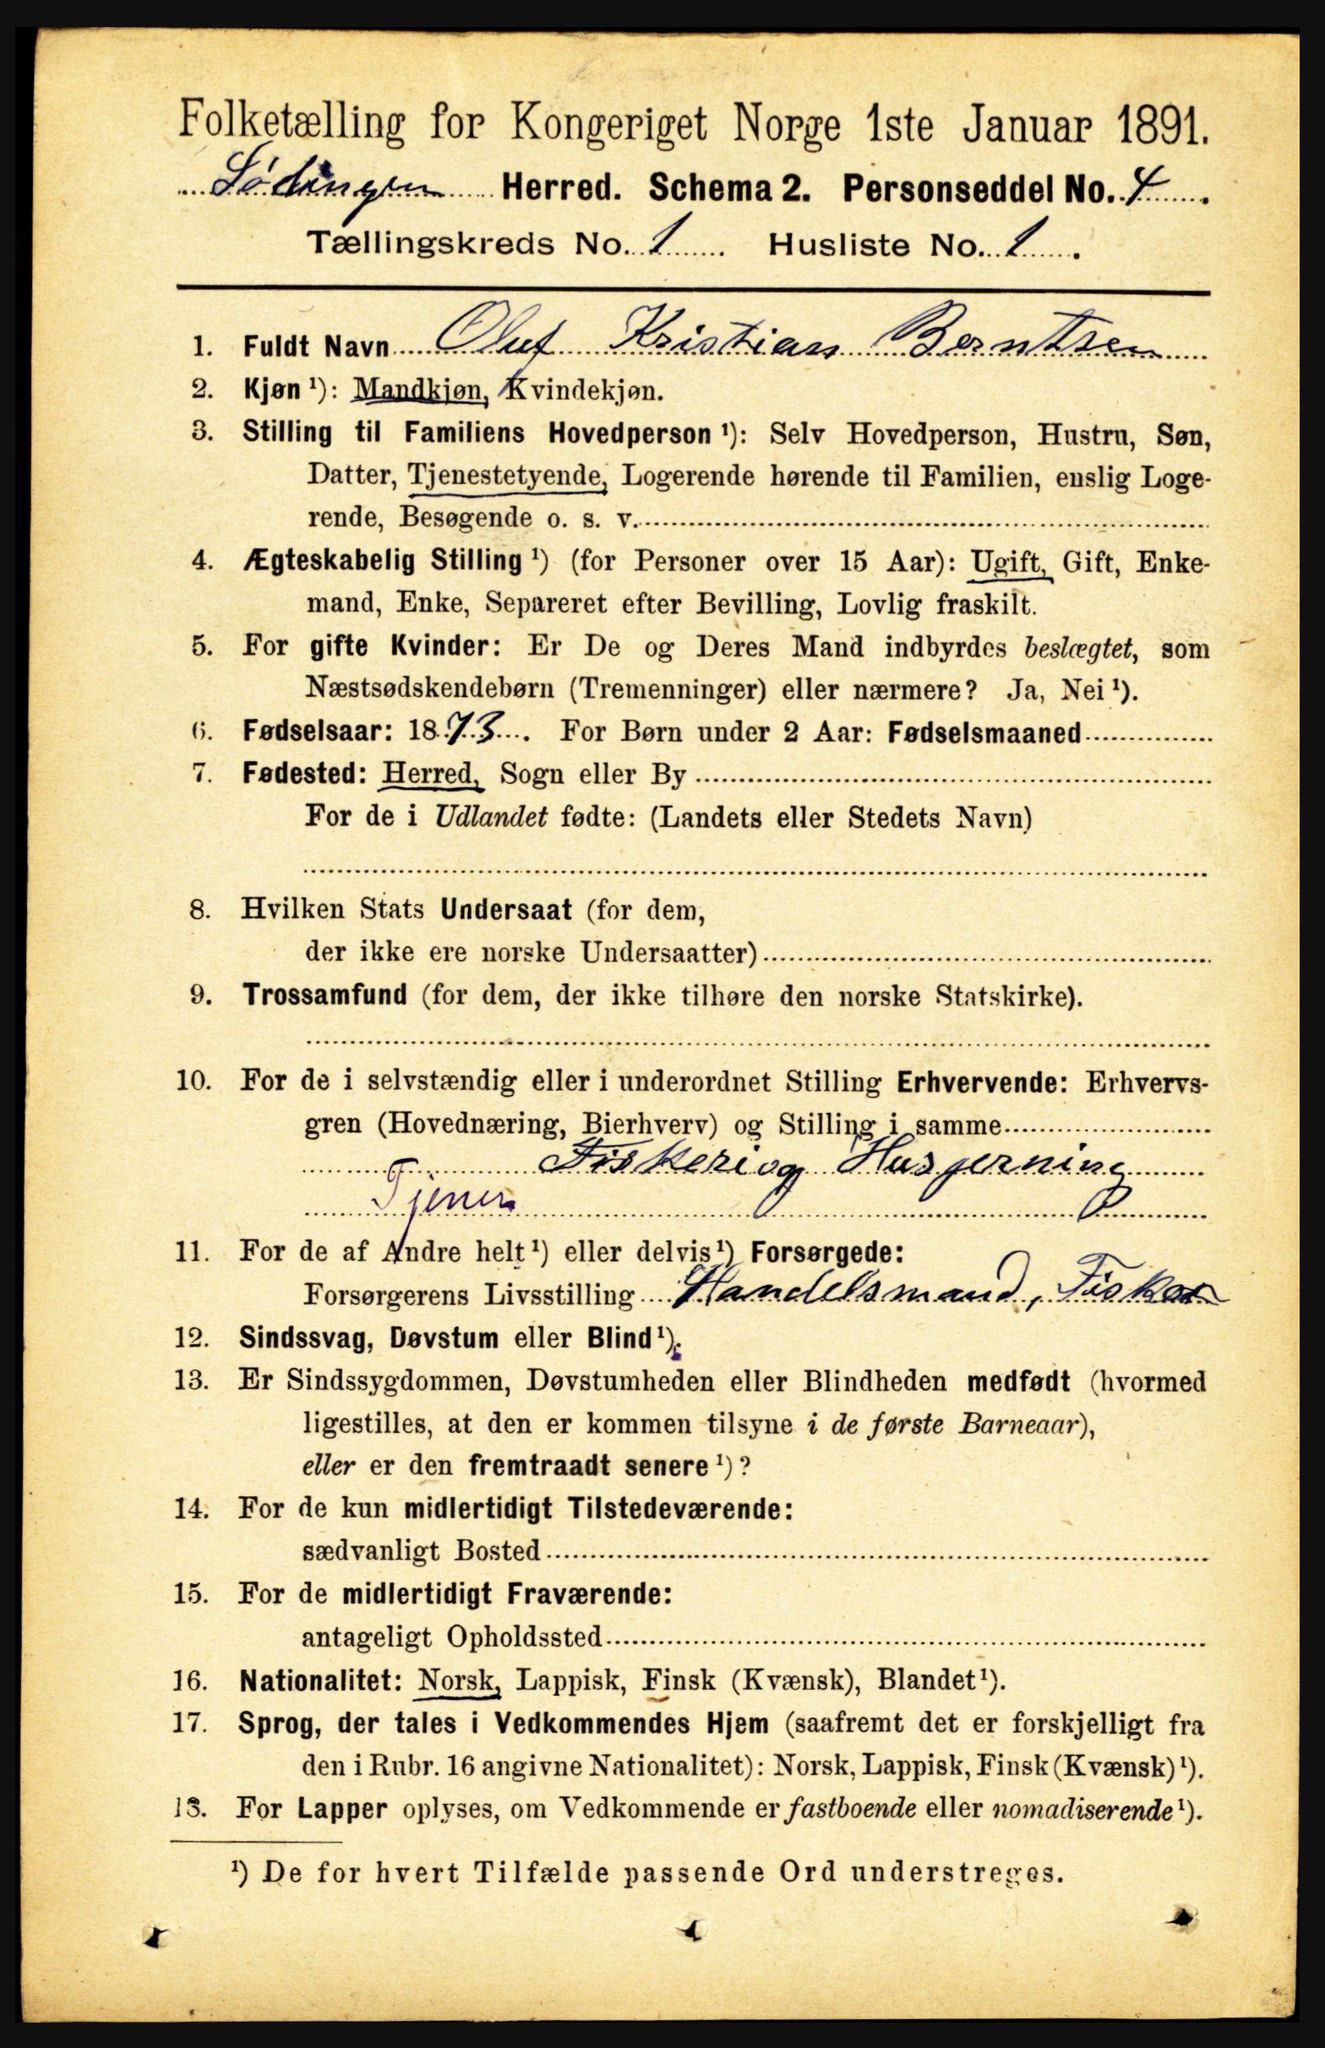 Folketælling for Kongeriget Norge 1ste Januar 1891.
Lødingen Herred. Schema 2. Personseddel No. 4.
Tællingskreds No. 1 Husliste No. 1.
1. Fuldt Navn Oluf Kristian Berntsen
2. Kjøn ¹): Mandkjøn, Kvindekjøn.
3. Stilling til Familiens Hovedperson ¹): Selv Hovedperson, Hustru, Søn,
Datter, Tjenestetyende, Logerende hørende til Familien, enslig Loge-
rende, Besøgende o. s. v.
4. Ægteskabelig Stilling ¹) (for Personer over 15 Aar): Ugift, Gift, Enke-
mand, Enke, Separeret efter Bevilling, Lovlig fraskilt.
5. For gifte Kvinder: Er De og Deres Mand indbyrdes beslægtet, som
Næstsødskendebørn (Tremenninger) eller nærmere? Ja, Nei ¹).
6. Fødselsaar: 1873. For Børn under 2 Aar: Fødselsmaaned
7. Fødested: Herred, Sogn eller By
For de i Udlandet fødte: (Landets eller Stedets Navn)
8. Hvilken Stats Undersaat (for dem,
der ikke ere norske Undersaatter)
9. Trossamfund (for dem, der ikke tilhøre den norske Statskirke).
10. For de i selvstændig eller i underordnet Stilling Erhvervende: Erhvervs-
gren (Hovednæring, Bierhverv) og Stilling i samme
Fiskeri og Husgerning
Tjener
11. For de af Andre helt ¹) eller delvis ¹) Forsørgede:
Forsørgerens Livsstilling Handelsmand, Fisker
12. Sindssvag, Døvstum eller Blind ¹).
13. Er Sindssygdommen, Døvstumheden eller Blindheden medfødt (hvormed
ligestilles, at den er kommen tilsyne i de første Barneaar),
eller er den fremtraadt senere ¹)?
14. For de kun midlertidigt Tilstedeværende:
sædvanligt Bosted
15. For de midlertidigt Fraværende:
antageligt Opholdssted
16. Nationalitet: Norsk, Lappisk, Finsk (Kvænsk), Blandet ¹).
17. Sprog, der tales i Vedkommendes Hjem (saafremt det er forskjelligt fra
den i Rubr. 16 angivne Nationalitet): Norsk, Lappisk, Finsk (Kvænsk) ¹).
18. For Lapper oplyses, om Vedkommende er fastboende eller nomadiserende ¹).
¹) De for hvert Tilfælde passende Ord understreges.